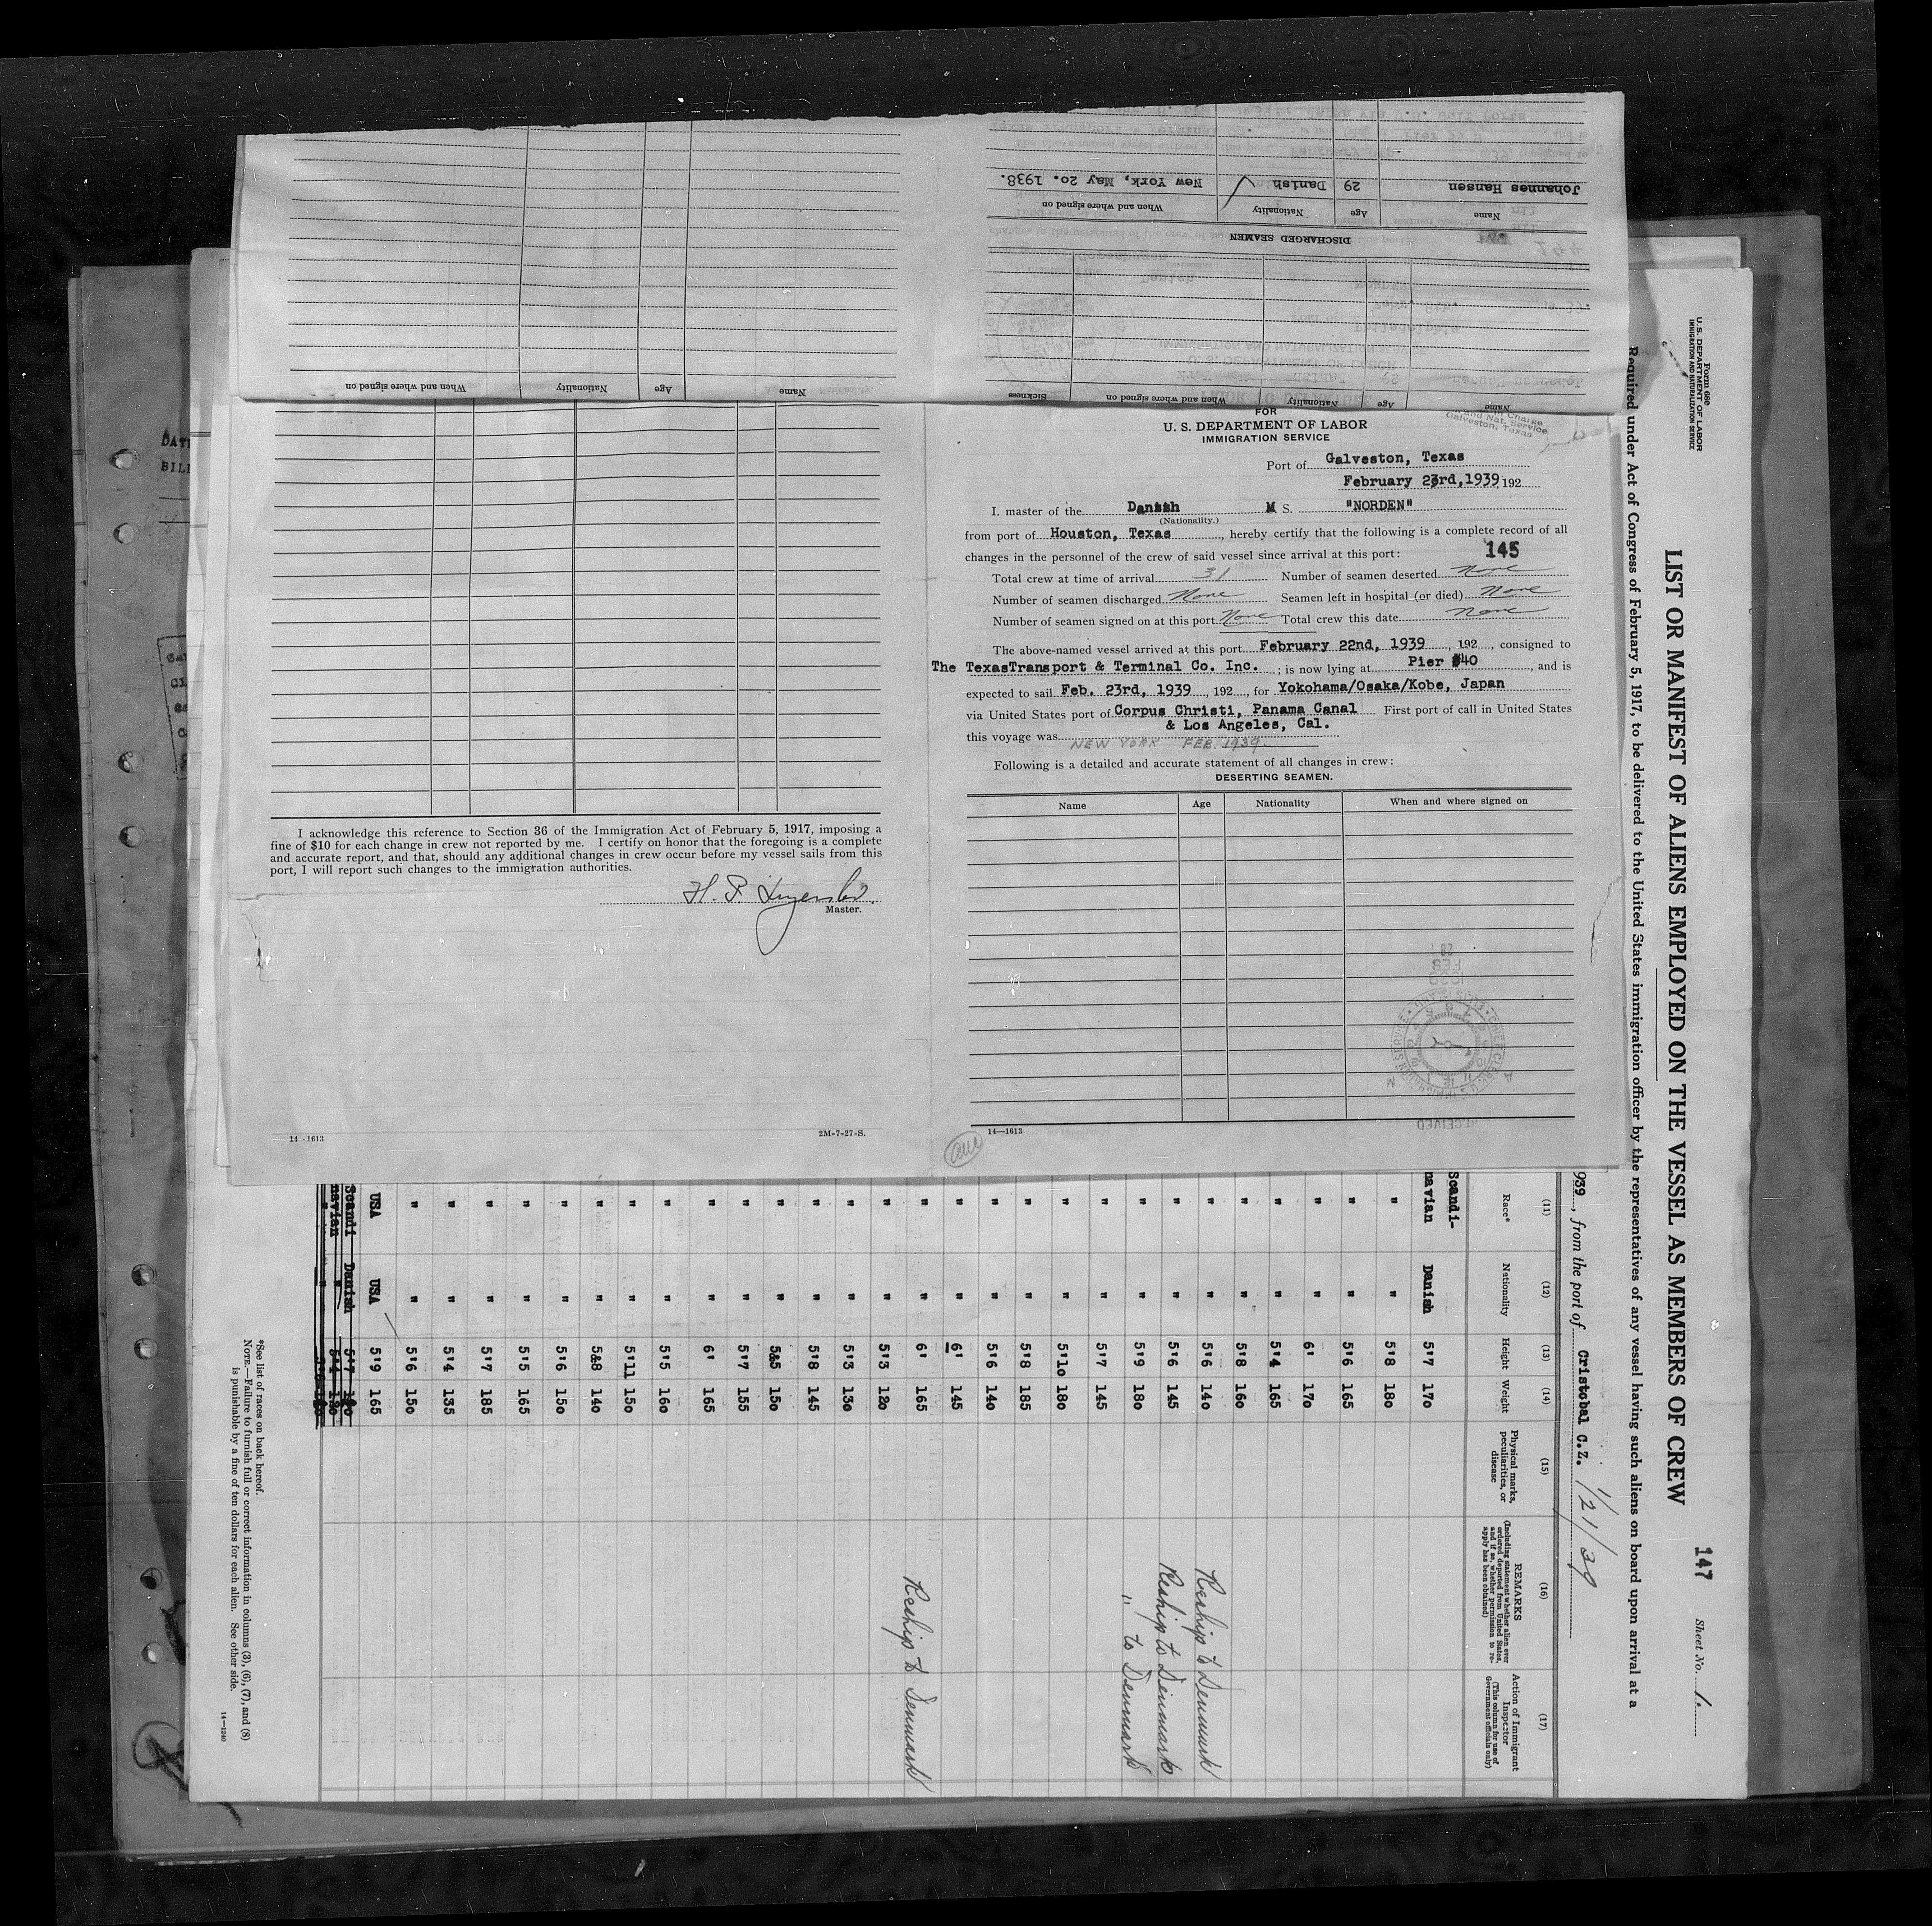 Johannes Hansen 29 Danish New York, May 20. 1938.
Name Age Nationality When and where signed on
DISCHARGED SEAMEN
Name Age Nationality When and where signed on
Name Age Nationality When and where signed on Sickness
FOR
U. S. DEPARTMENT OF LABOR
IMMIGRATION SERVICE
and Nat. Service
Galveston, Texas
Port of Galveston, Texas
February 23rd, 1939 192
I. master of the Danish M S. "NORDEN"
(Nationality.)
from port of Houston, Texas, hereby certify that the following is a complete record of all
changes in the personnel of the crew of said vessel since arrival at this port:
145
Total crew at time of arrival 31 Number of seamen deserted None
Number of seamen discharged None Seamen left in hospital (or died) None
Number of seamen signed on at this port None Total crew this date None
The above-named vessel arrived at this port February 22nd, 1939, 192, consigned to
The TexasTransport & Terminal Co. Inc.; is now lying at Pier #40, and is
expected to sail Feb. 23rd, 1939, 192, for Yokohama/Osaka/Kobe, Japan
via United States port of Corpus Christi, Panama Canal First port of call in United States
& Los Angeles, Cal.
this voyage was NEW YORK FEB. 1939
Following is a detailed and accurate statement of all changes in crew:
DESERTING SEAMEN.
Name Age Nationality When and where signed on
1939
FEB
RECEIVED
14—1613
I acknowledge this reference to Section 36 of the Immigration Act of February 5, 1917, imposing a
fine of $10 for each change in crew not reported by me. I certify on honor that the foregoing is a complete
and accurate report, and that, should any additional changes in crew occur before my vessel sails from this
port, I will report such changes to the immigration authorities.
Master.
14-1613 2M-7-27-S.
Form 680
U. S. DEPARTMENT OF LABOR
IMMIGRATION AND NATURALIZATION SERVICE
147
Sheet No. 1.
LIST OR MANIFEST OF ALIENS EMPLOYED ON THE VESSEL AS MEMBERS OF CREW
Required under Act of Congress of February 5, 1917, to be delivered to the United States immigration officer by the representatives of any vessel having such aliens on board upon arrival at a
939, from the port of Cristobal C.Z. 1/21/39
(11) (12) (13) (14) (15) (16) (17)
Race* Nationality Height Weight Physical marks, peculiarities, or disease REMARKS (Including statement whether alien ever ordered deported from United States, and if so, whether permission to reapply has been obtained) Action of Immigrant Inspector (This column for use of Government officials only)
Scandi-
navian Danish 5'7 170
" " 5'8 180
" " 5'6 165
" " 6' 170
" " 5'4 165
" " 5'8 160
" " 5'6 140 Reship to Denmark
" " 5'6 145 Reship to Denmark
" " 5'9 180 " to Denmark
" " 5'7 145
" " 5'10 180
" " 5'8 185
" " 5'6 140
" " 6' 145
" " 6' 165 Reship to Denmark
" " 5'3 120
" " 5'3 130
" " 5'8 145
" " 5&5 150
" " 5'7 155
" " 6' 165
" " 5'5 160
" " 5'11 150
" " 5&8 140
" " 5'6 150
" " 5'5 165
" " 5'7 185
" " 5'4 135
" " 5'6 150
USA USA 5'9 165
Scandi
navian Danish 5'7
*See list of races on back hereof.
NOTE.—Failure to furnish full or correct information in columns (3), (6), (7), and (8)
is punishable by a fine of ten dollars for each alien. See other side.
14—1240